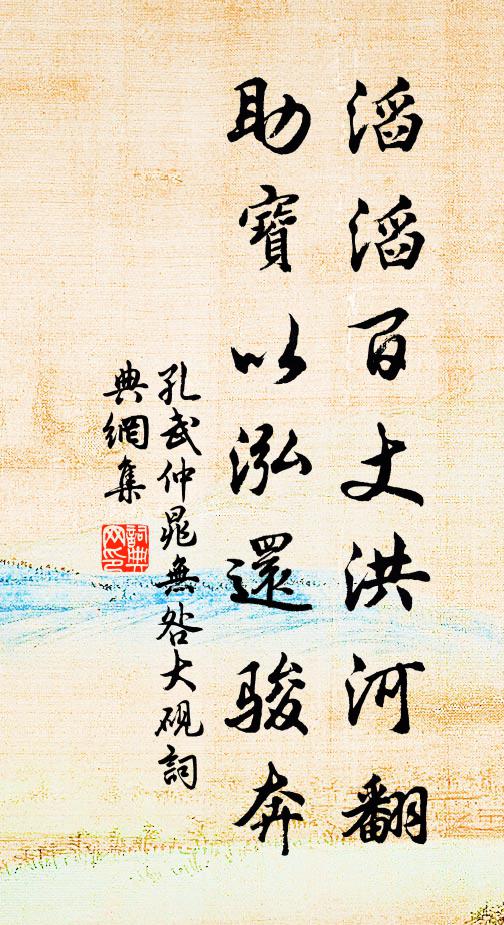 滔滔百丈洪河翻
助寶以泓還骏奔
孔武仲晁無咎大硯詞
典網集
詞典网印